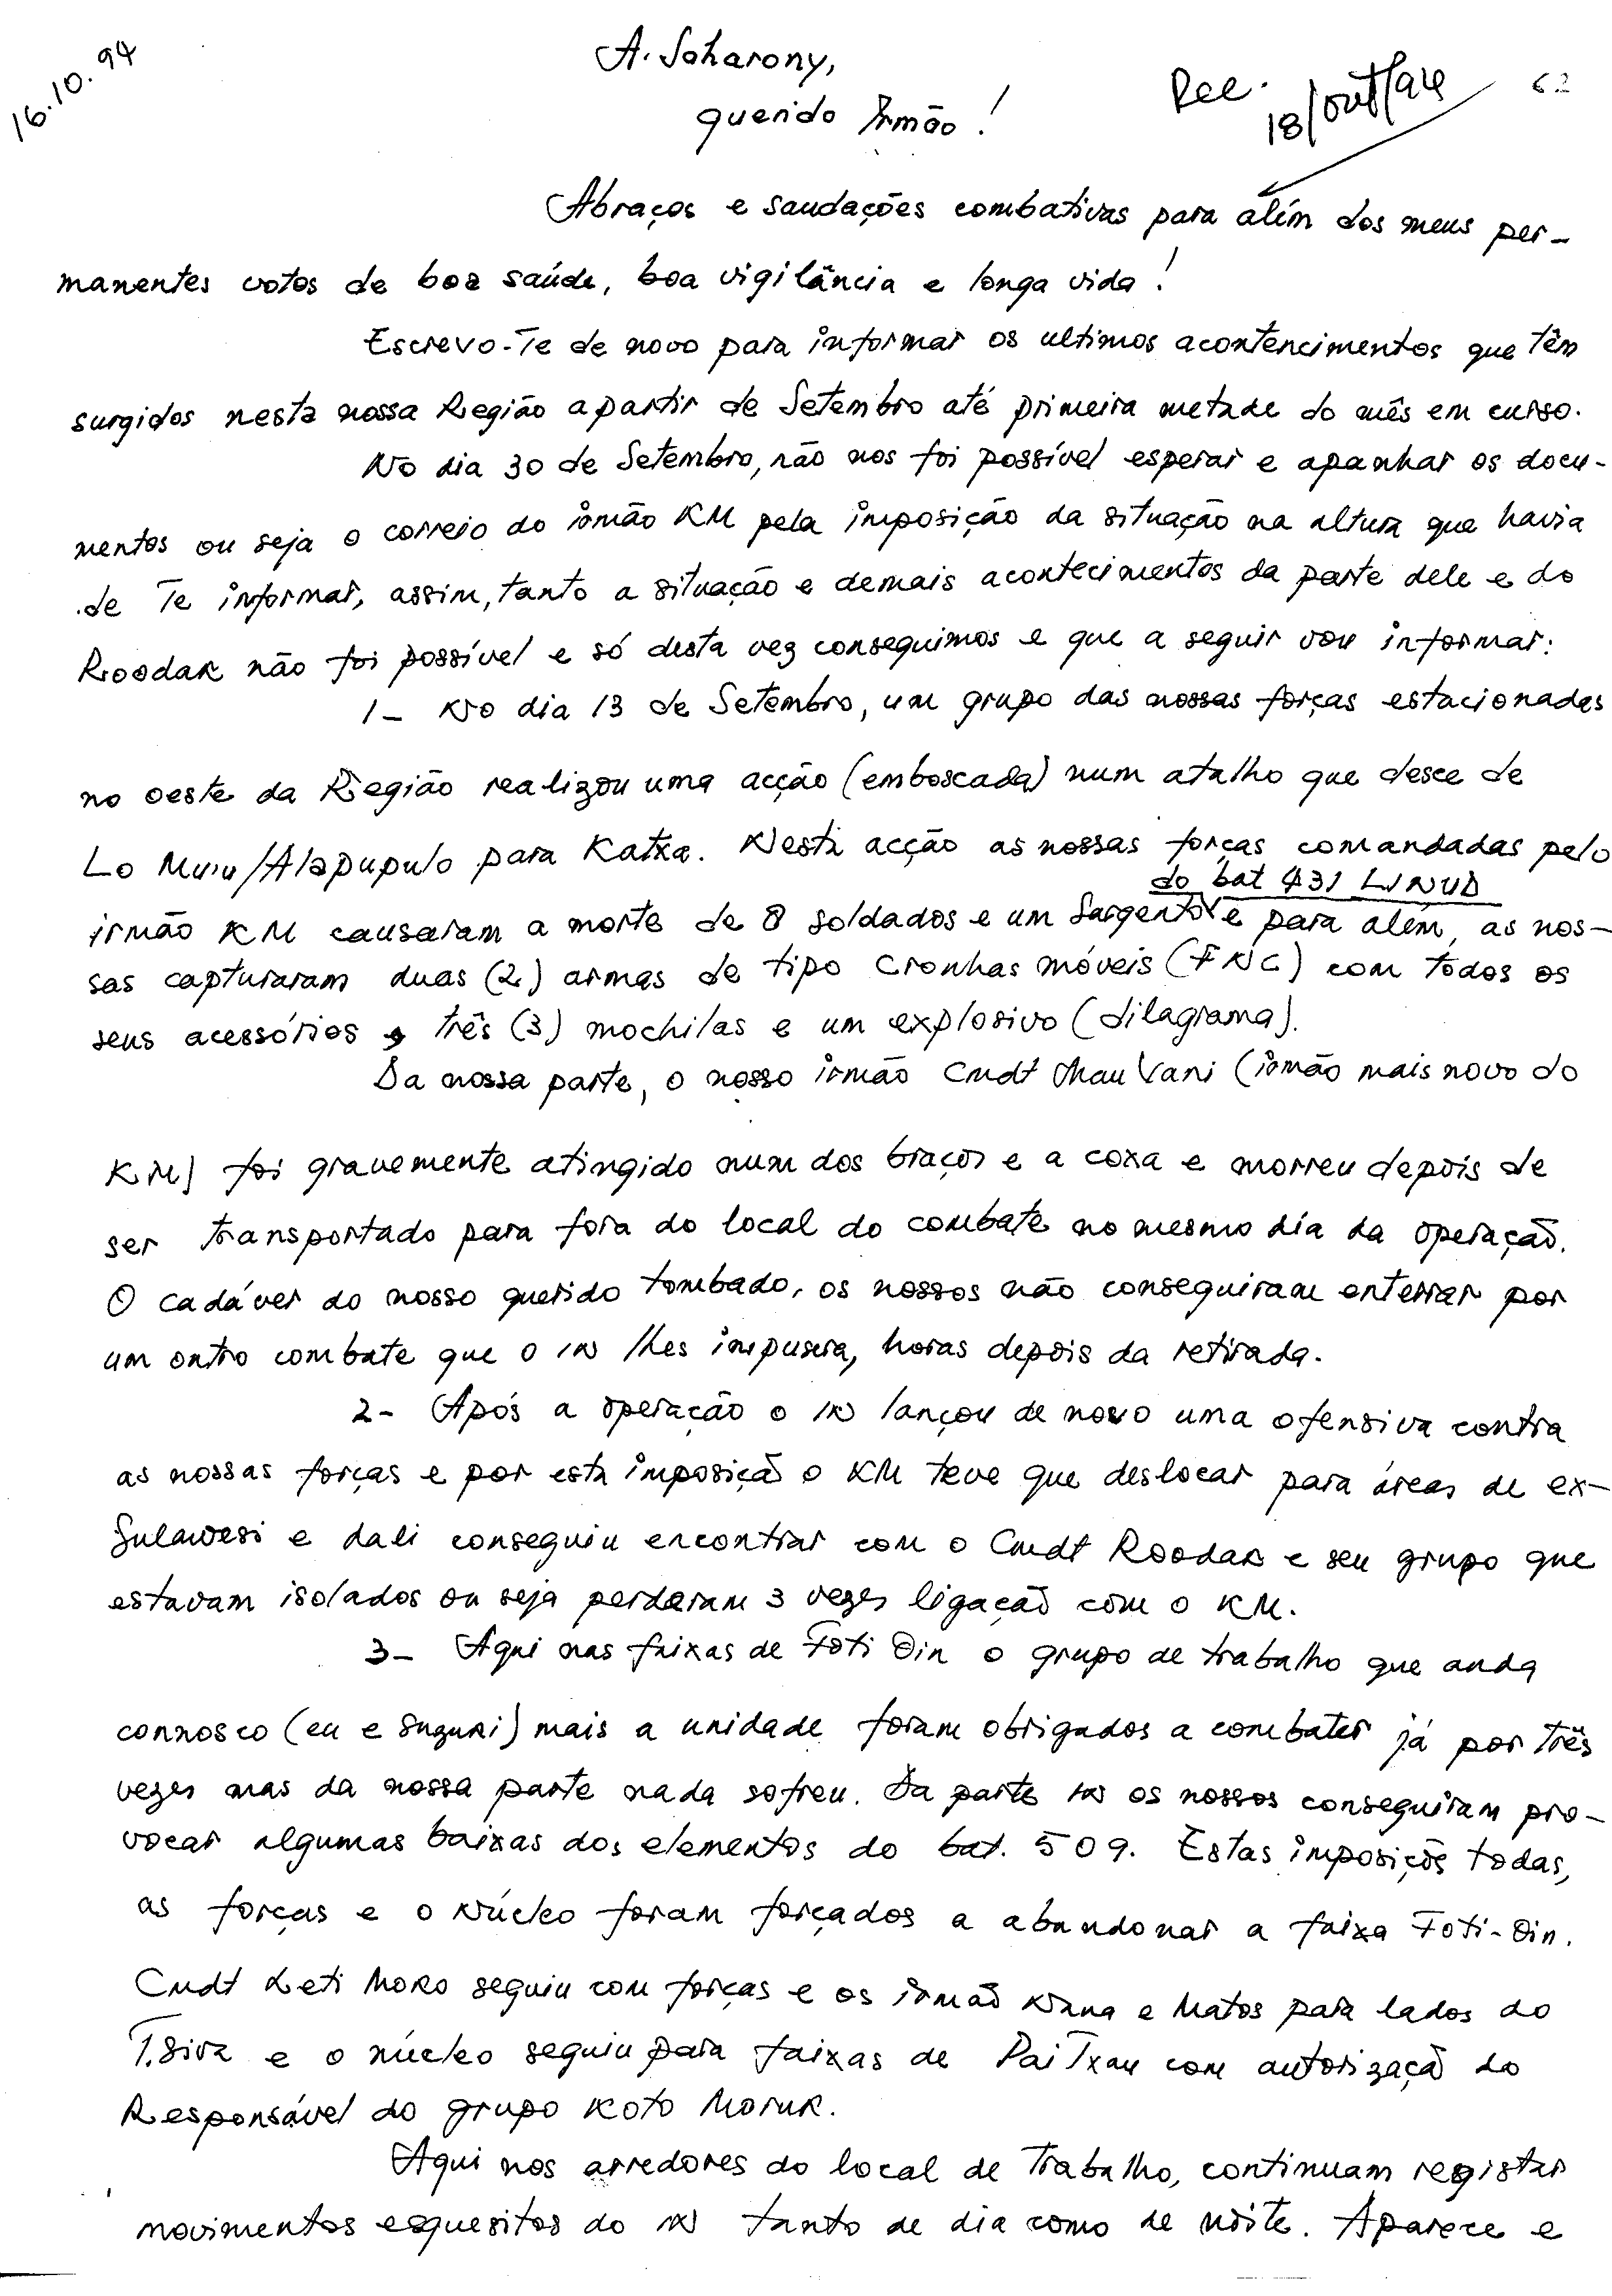 16.10.94
A. Soharony,
querido Irmão!
Rec. 18/out/94
62
Abraços e saudações combativas para além dos meus per-
manentes votos de boa saúde, boa vigilância e longa vida!
Escrevo-Te de novo para informar os ultimos acontencimentos que têm
surgidos nesta nossa Região apartir de Setembro até primeira metade do mês em curso.
No dia 30 de Setembro, não nos foi possível esperar e apanhar os docu-
mentos ou seja o correio do irmão KM pela imposição da situação na altura que havia
de Te informar, assim, tanto a situação e demais acontecimentos da parte dele e do
Roodak não foi possível e só desta vez conseguimos e que a seguir vou informar:
1- No dia 13 de Setembro, um grupo das nossas forças estacionadas
no oeste da Região realizou uma acção (emboscada) num atalho que desce de
Lo Muru/Alapupulo para Katxa. Nesta acção as nossas forças comandadas pelo
do bat 431 LINUD
irmão KM causaram a morte de 8 soldados e um Sargento e para além, as nos-
sas capturaram duas (2) armas de tipo Cronhas móveis (FNC) com todos os
seus acessórios, três (3) mochilas e um explosivo (dilagrama).
Da nossa parte, o nosso irmão Cmdt Mau Vani (irmão mais novo do
KM) foi gravemente atingido num dos braços e a coxa e morreu depois de
ser transportado para fora do local do combate no mesmo dia da operação.
O cadáver do nosso querido tombado, os nossos não conseguiram enterrar por
um outro combate que o IN lhes impusera, horas depois da retirada.
2- Após a operação o IN lançou de novo uma ofensiva contra
as nossas forças e por esta imposiçã o KM teve que deslocar para áreas de ex-
Sulawesi e dali conseguiu encontrar com o Cmdt Roodak e seu grupo que
estavam isolados ou seja perderam 3 vezes ligaçaõ com o KM.
3- Aqui nas faixas de Foti Oin o grupo de trabalho que anda
connosco (eu e Suguri) mais a unidade foram obrigados a combater já por três
vezes mas da nossa parte nada sofreu. Da parte IN os nossos conseguiram pro-
vocar algumas baixas dos elementos do bat. 509. Estas imposiçõs todas,
as forças e o Núcleo foram forçados a abandonar a faixa Foti-Oin.
Cmdt Leti Moko seguiu com forças e os irmaõ Nana e Matos para lados do
T.Sira e o núcleo seguiu para faixas de PaiTxau com autorizaçã do
Responsável do grupo Koto Moruk.
Aqui nos arredores do local de Trabalho, continuam registar
movimentos esquesitos do IN tanto de dia como de noite. Aparece e